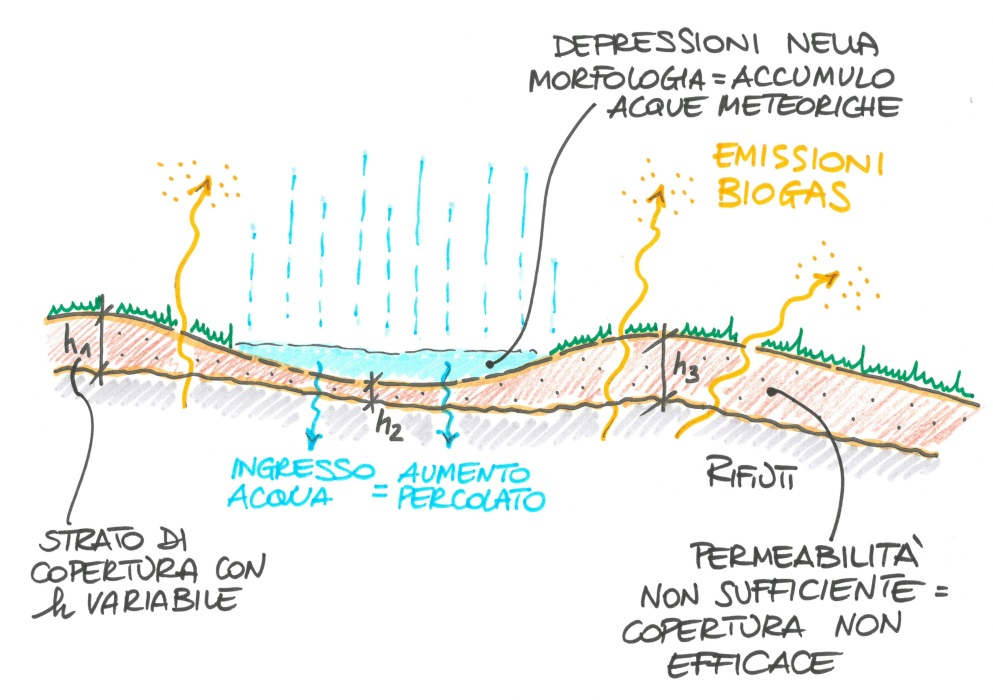 DEPRESSIONI NELLA
MORFOLOGIA = ACCUMULO
ACQUE METEORICHE
EMISSIONI
BIOGAS
h1
h3
h2
INGRESSO
ACQUA
= AUMENTO
PERCOLATO
RIFIUTI
STRATO DI
COPERTURA CON
h VARIABILE
PERMEABILITÀ
NON SUFFICIENTE =
COPERTURA NON
EFFICACE